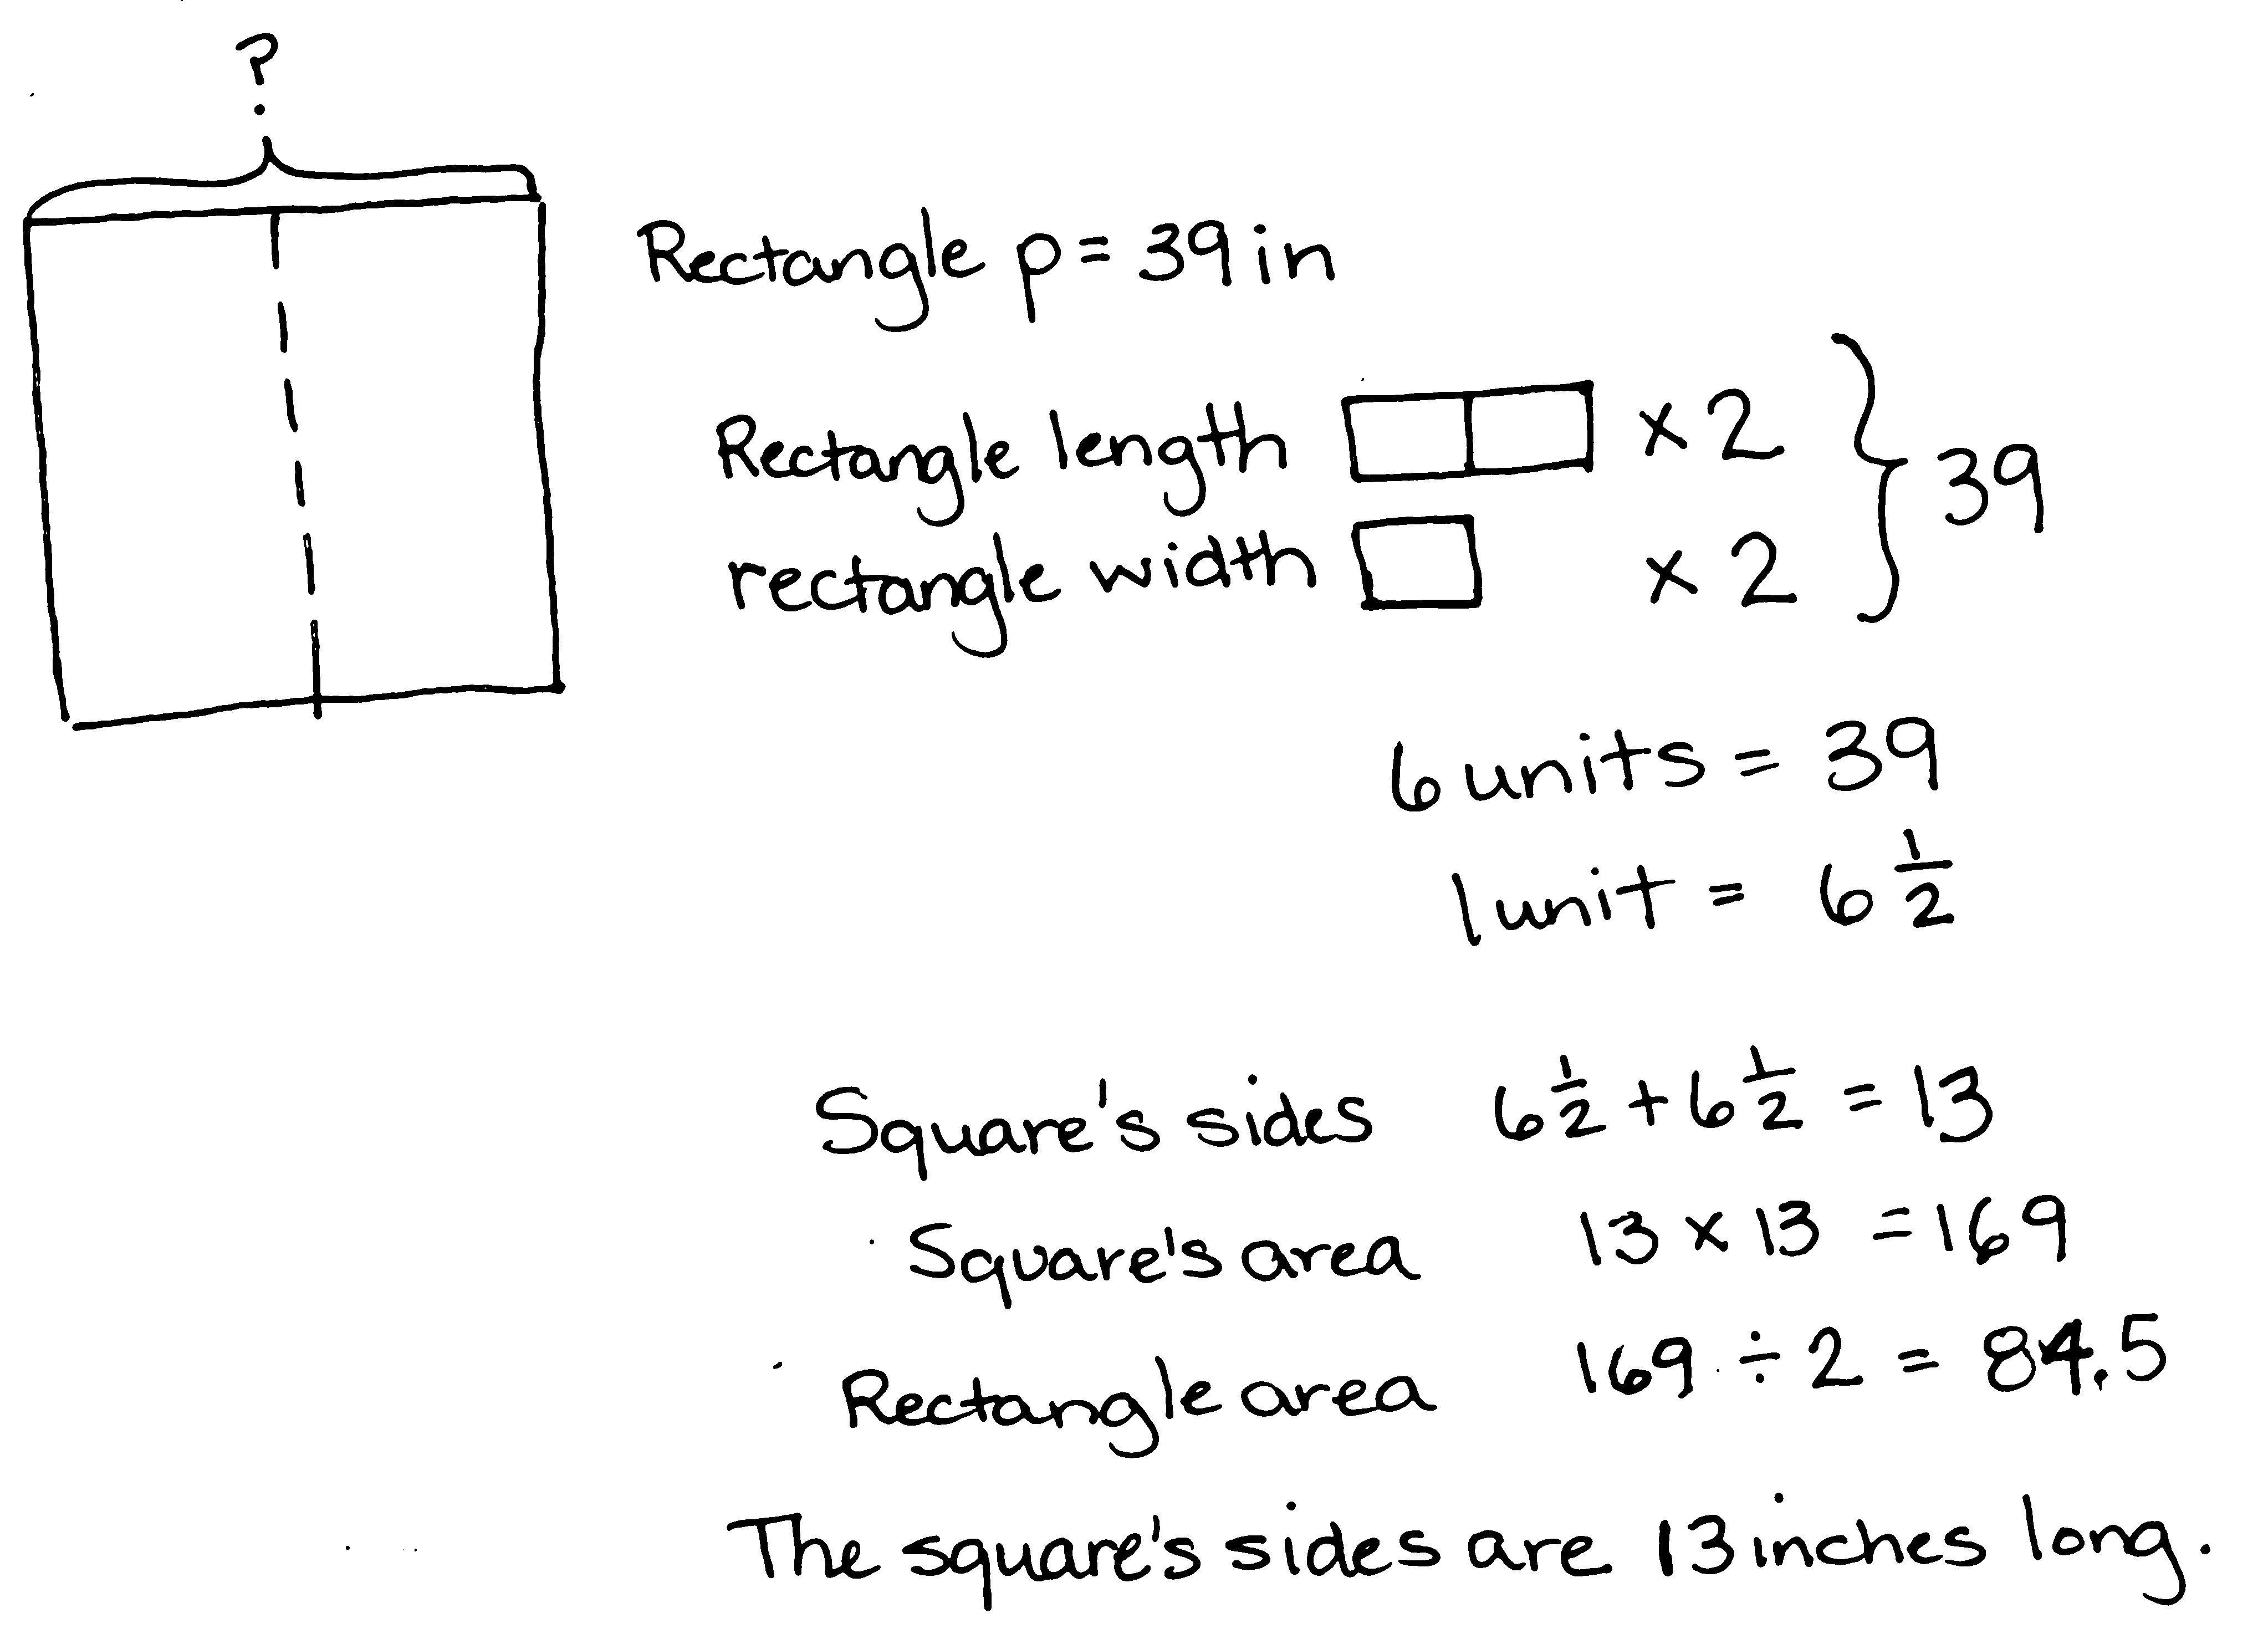 ?
Rectangle p = 39 in
Rectangle length × 2
rectangle width × 2
39
6 units = 39
1 unit = 6 1/2
Square's sides 6 1/2 + 6 1/2 = 13
Square's area 13 × 13 = 169
Rectangle area 169 ÷ 2 = 84.5
The square's sides are 13 inches long.